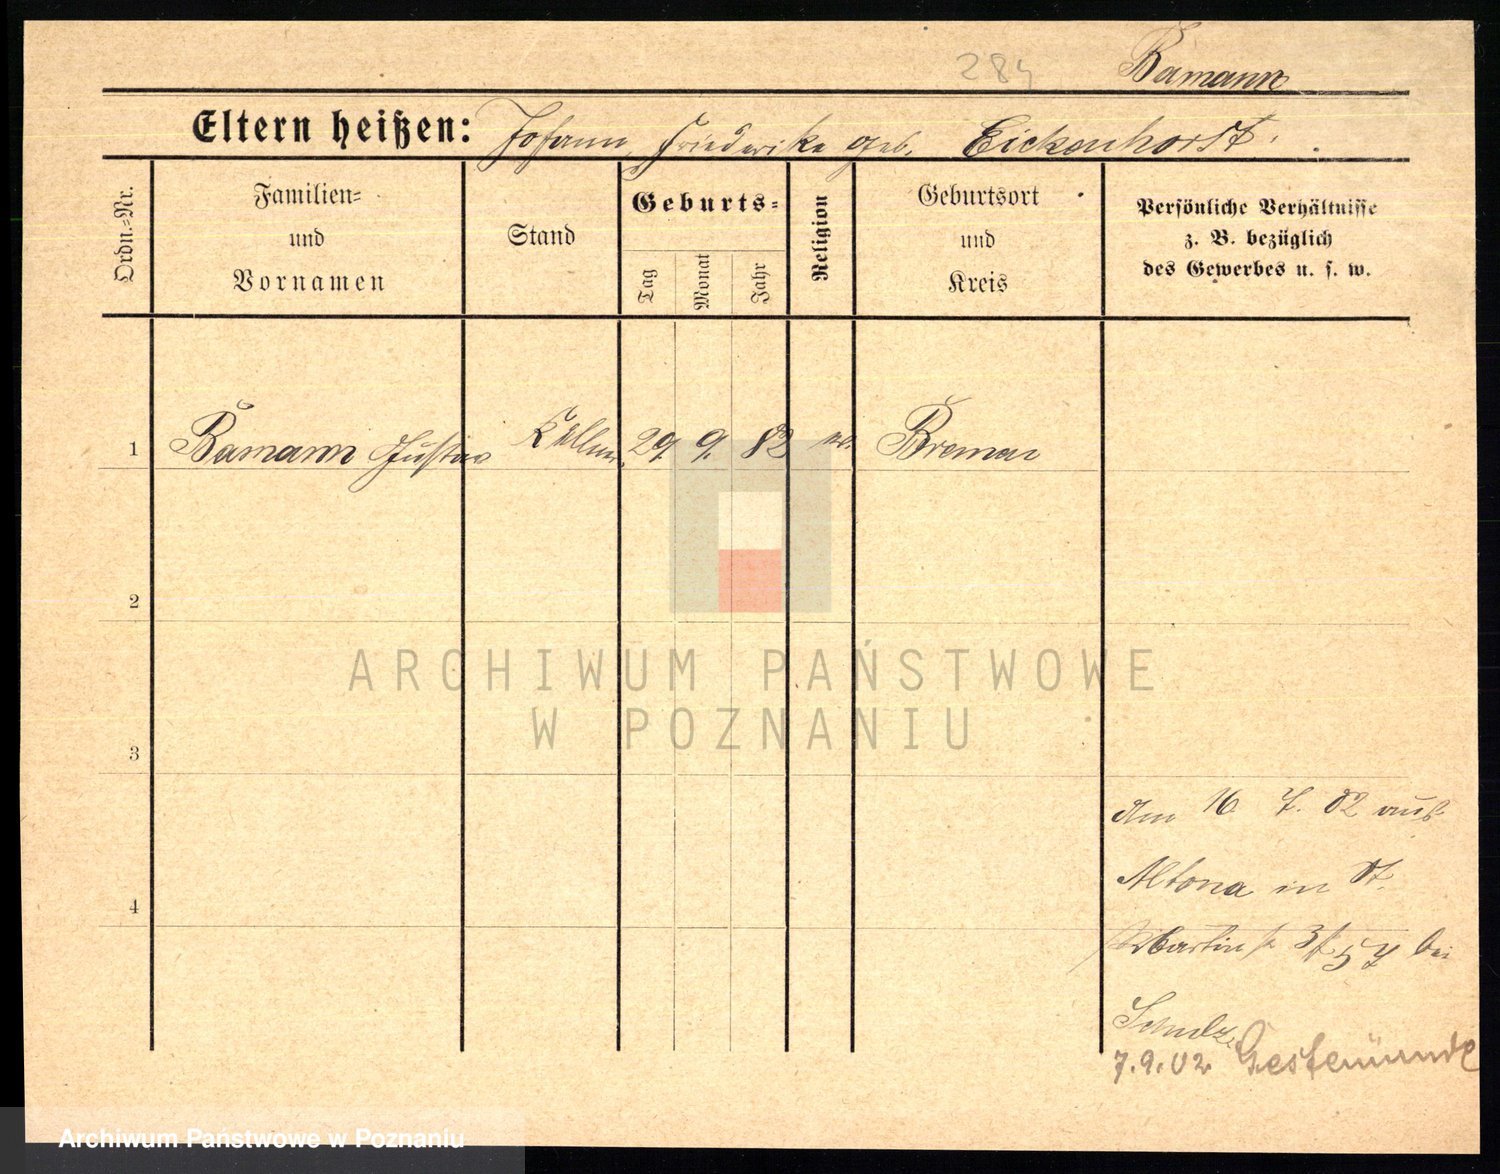 284 Bamann
Eltern heißen: Johann, Friederike geb. Eickenhorst.
Ordn.=Nr.
Familien=
und
Vornamen
Stand
Geburts=
Tag
Monat
Jahr
Religion
Geburtsort
und
Kreis
Persönliche Verhältnisse
z. B. bezüglich
des Gewerbes u. s. w.
1 Bamann Gustav Kellner 29. 9. 82 Bremen
2
3
4
ARCHIWUM PAŃSTWOWE
W POZNANIU
Am 16 7. 02 aus
Altona in St.
Martinstr 57 bei
Schulz.
7.9.02 Gestemünde
Archiwum Państwowe w Poznaniu